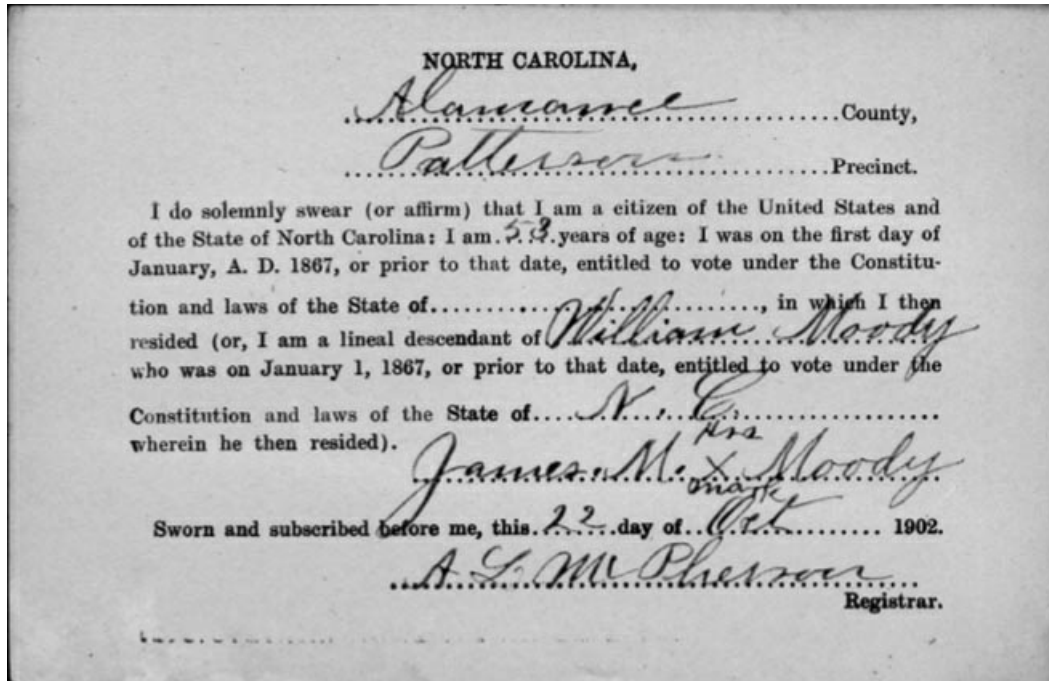 NORTH CAROLINA,
Alamance County,
Patterson Precinct.
I do solemnly swear (or affirm) that I am a citizen of the United States and
of the State of North Carolina: I am 53 years of age: I was on the first day of
January, A. D. 1867, or prior to that date, entitled to vote under the Constitu-
tion and laws of the State of...................., in which I then
resided (or, I am a lineal descendant of William Moody
who was on January 1, 1867, or prior to that date, entitled to vote under the
Constitution and laws of the State of N. C.
wherein he then resided).
his
James M. X Moody
mark
Sworn and subscribed before me, this 22 day of Oct 1902.
A L McPherson
Registrar.